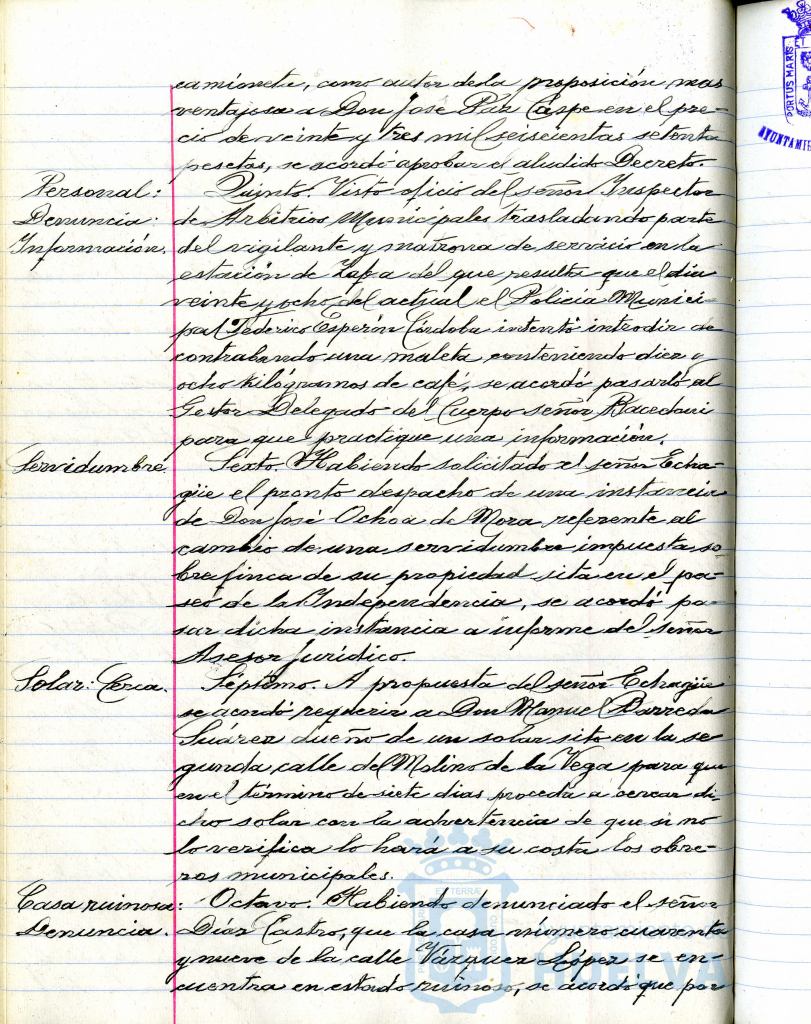 camioneta, como autor de la proposición mas
ventajosa a Don José Páz Caspe en el pre-
cio de veinte y tres mil seiscientas setenta
pesetas, se acordó aprobar el aludido Decreto.
Personal:
Denuncia:
Información.
Quinto. Visto oficio del señor Inspector
de Arbitrios Municipales trasladando parte
del vigilante y matrona de servicio en la
estación de Zafra del que resulta que el dia
veinte y ocho del actual el Policía Munici-
pal Federico Esperón Córdoba intentó introdir de
contrabando una maleta conteniendo diez y
ocho kilógramos de café, se acordó pasarlo al
Gestor Delegado del Cuerpo señor
para que practique una información.
Servidumbre.
Sexto. Habiendo solicitado el señor Echa-
güe el pronto despacho de una instancia
de Don José Ochoa de Mora referente al
cambio de una servidumbre impuesta so-
bre finca de su propiedad sita en el pa-
seo de la Independencia, se acordó pa-
sar dicha instancia a informe del señor
Asesor jurídico.
Solar: Cerca.
Séptimo. A propuesta del señor Echagüe
se acordó requerir a Don Manuel Barreda
Suárez dueño de un solar sito en la se-
gunda calle del Molino de la Vega para que
en el término de siete dias proceda a cercar di-
cho solar con la advertencia de que si no
lo verifica lo hará a su costa los obre-
ros municipales.
Casa ruinosa:
Denuncia.
Octavo. Habiendo denunciado el señor
Díaz Castro, que la casa número cuarenta
y nueve de la calle Vázquez López se en-
cuentra en estado ruinoso, se acordó que por
PORTUS MARIS
AYUNTAMIE
HUELVA